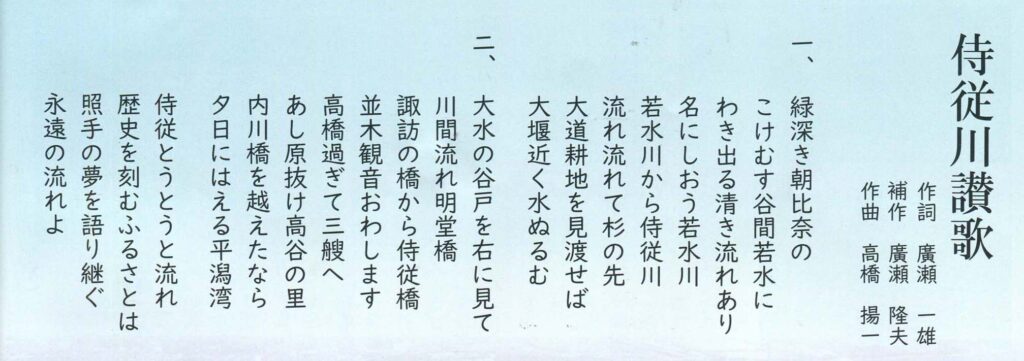 侍従川讃歌
作詞 廣瀬 一雄
補作 廣瀬 隆夫
作曲 高橋 揚一
一、緑深き朝比奈の
こけむす谷間若水に
わき出る清き流れあり
名にしおう若水川
若水川から侍従川
流れ流れて杉の先
大道耕地を見渡せば
大堰近く水ぬるむ
二、大水の谷戸を右に見て
川間流れ明堂橋
諏訪の橋から侍従橋
並木観音おわします
高橋過ぎて三艘へ
あし原抜け高谷の里
内川橋を越えたなら
夕日にはえる平潟湾
侍従とうとうと流れ
歴史を刻むふるさとは
照手の夢を語り継ぐ
永遠の流れよ